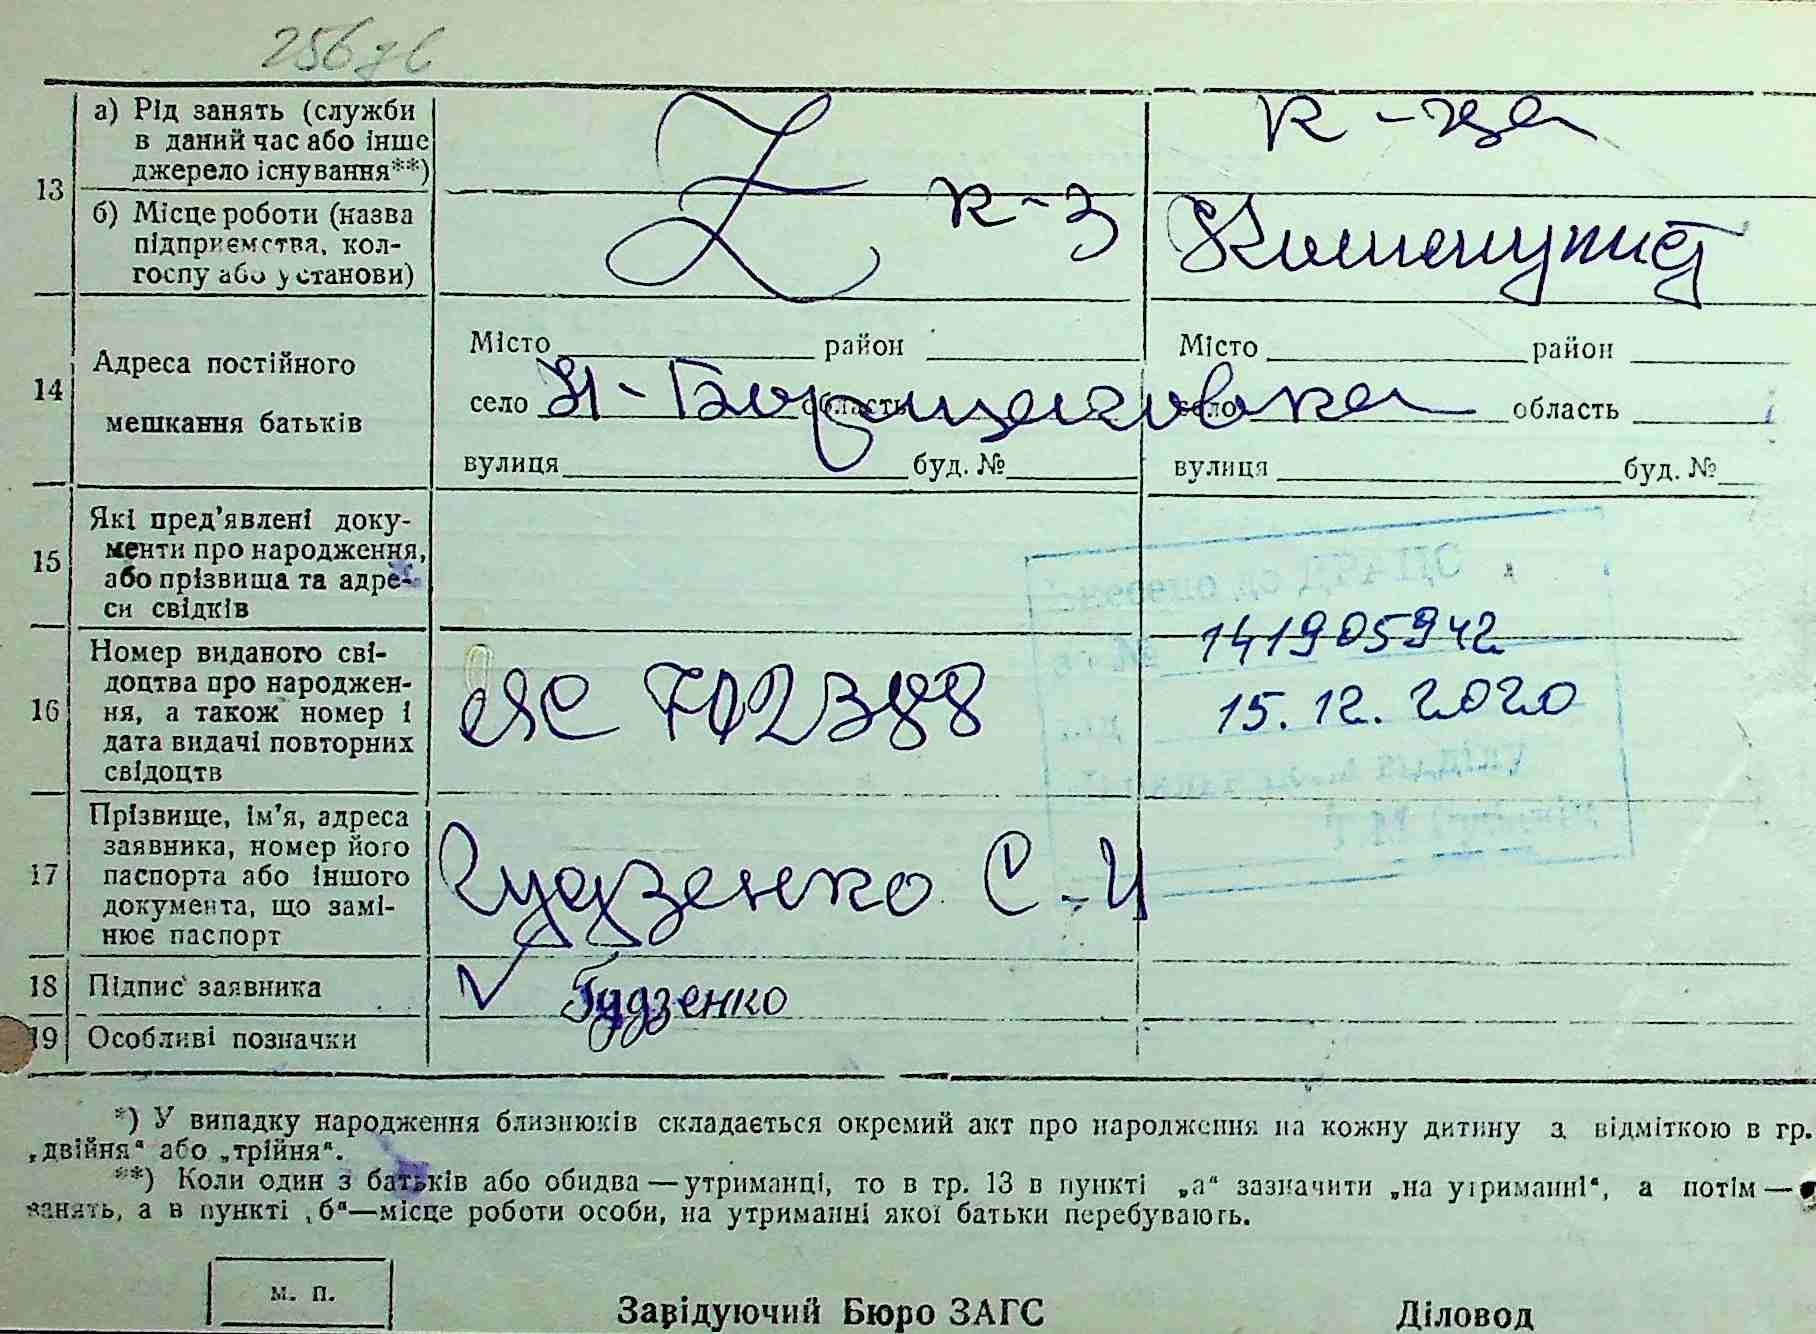 256 зв
13
а) Рід занять (служби
в даний час або інше
джерело існування**)
к-ца
б) Місце роботи (назва
підприємства, кол-
госпу або установи)
к-з
Комунист
14
Адреса постійного
мешкання батьків
Місто район
село Н-Борщаговка область
вулиця буд. №
Місто район
село область
вулиця буд. №
15
Які пред’явлені доку-
менти про народження,
або прізвища та адре-
си свідків
16
Номер виданого сві-
доцтва про народжен-
ня, а також номер і
дата видачі повторних
свідоцтв
ЯС 702388
внесено до ДРАЦС
№ 141905942
15.12.2020
відділу
17
Прізвище, ім’я, адреса
заявника, номер його
паспорта або іншого
документа, що замі-
нює паспорт
Гудзенко С-И
18
Підпис заявника
Гудзенко
19
Особливі позначки
*) У випадку народження близнюків складається окремий акт про народження на кожну дитину з відміткою в гр.
„двійня“ або „трійня“.
**) Коли один з батьків або обидва — утриманці, то в гр. 13 в пункті „а“ зазначити „на утриманні“, а потім —
занять, а в пункті „б“—місце роботи особи, на утриманні якої батьки перебувають.
м. п.
Завідуючий Бюро ЗАГС
Діловод